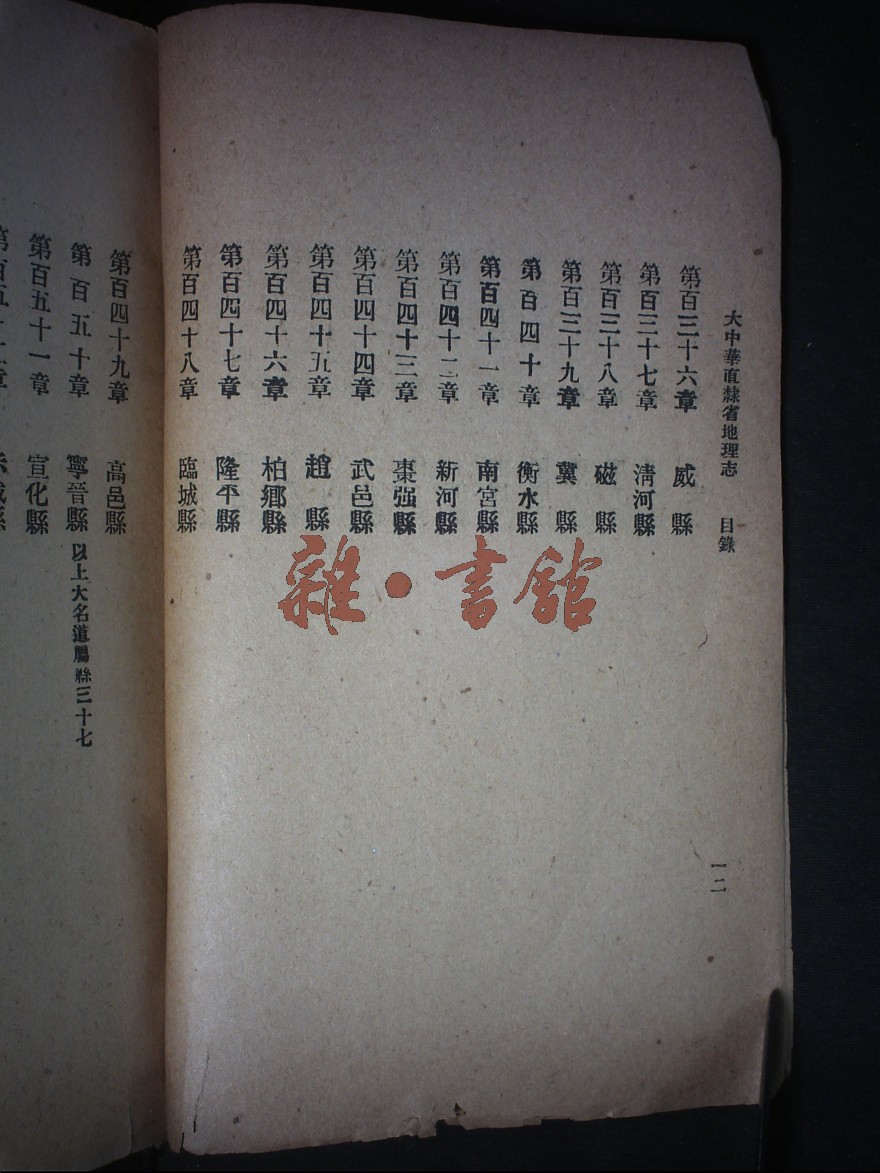 大中華直隸省地理志 目錄 一二
第百三十六章 威縣
第百三十七章 淸河縣
第百三十八章 磁縣
第百三十九章 冀縣
第百四十章 衡水縣
第百四十一章 南宮縣
第百四十二章 新河縣
第百四十三章 棗强縣
第百四十四章 武邑縣
第百四十五章 趙縣
第百四十六章 柏鄉縣
第百四十七章 隆平縣
第百四十八章 臨城縣
第百四十九章 高邑縣
第百五十章 寧晉縣 以上大名道屬縣三十七
第百五十一章 宣化縣
雜·書館